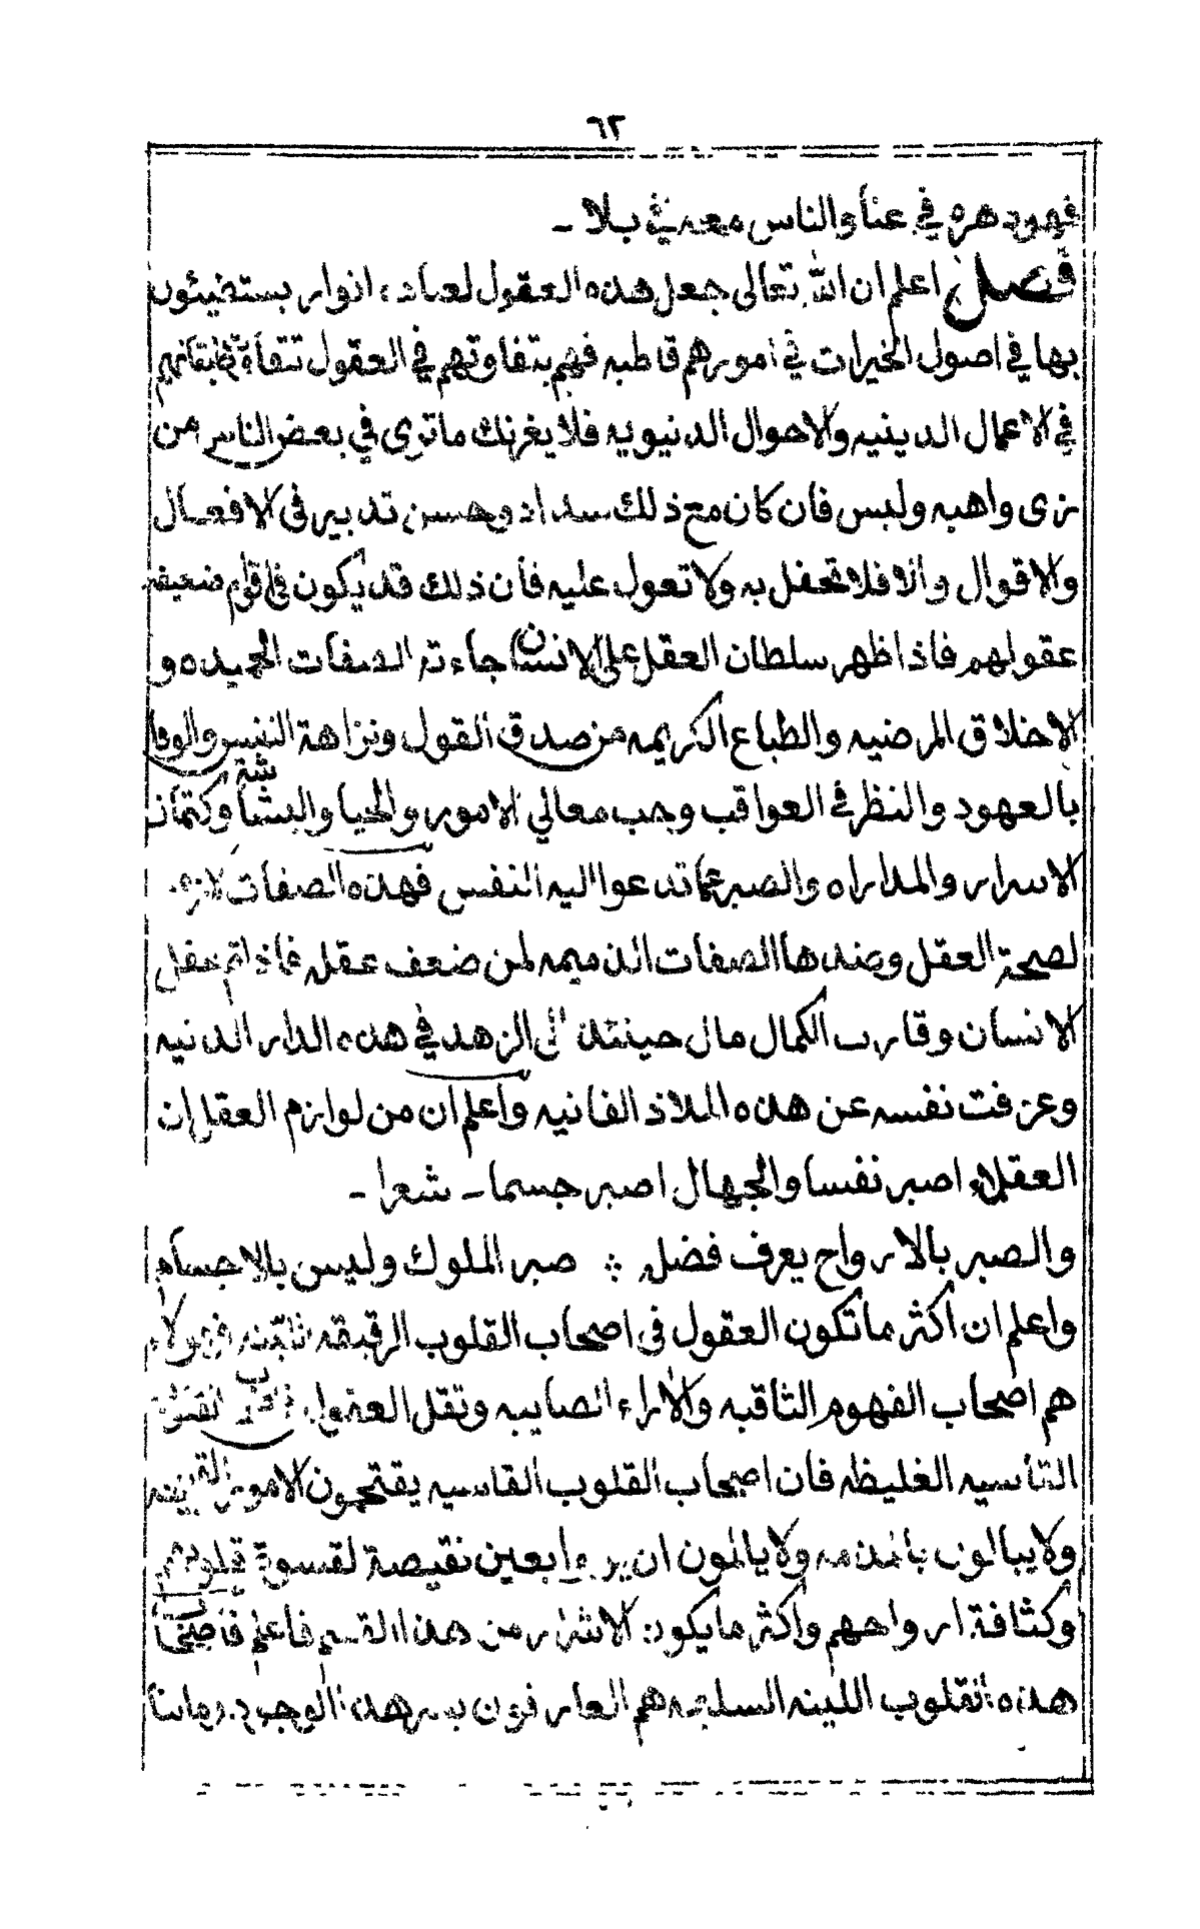 ٦٢
فهو دهره في عنأ والناس معه في بلا -
فصل اعلم ان الله تعالى جعل هذه العقول لعباده انوار يستضيئون
بها في اصول الخيرات في امورهم قاطبه فهم بتفاوتهم في العقول تتفأة
في الاعمال الدينيه والاحوال الدنيويه فلا يغرنك ما ترى في بعض الناس من
زى واهبه ولبس فان كان مع ذلك سداد وحسن تدبير فى الافعال
والاقوال وألا فلا تحفل به ولا تعول عليه فأن ذلك قد يكون فى اقوام ضعيفه
عقولهم فاذا ظهر سلطان العقل على الانسان جاءته الصفات الحميده و
الاخلاق المرضيه والطباع الكريمه من صدق القول ونزاهة النفس والوفا
بالعهود والنظر في العواقب وحب معالي الامور والحيا والبشاشة وكتمان
الاسرار والمداراه والصبر عما تدعوا اليه النفس فهذه الصفات لازمه
لصحة العقل وضدها الصفات الذميمه لمن ضعف عقله فاذا تم عقل
الانسان وقارب الكمال مال حينئذ الى الزهد في هذه الدار الدنيه
وعزفت نفسه عن هذه الملاذ الفانيه واعلم ان من لوازم العقل ان
العقلاء اصبر نفسا والجهال اصبر جسما - شعرا -
والصبر بالارواح يعرف فضله ؞ صبر الملوك وليس بالاجسام
واعلم ان أكثر ما تكون العقول فى اصحاب القلوب الرقيقه فهولاء
هم اصحاب الفهوم الثاقبه والأراء الصايبه وتقل العقول
القاسيه الغليظه فان اصحاب القلوب القاسيه يقتحمون الامور
ولا يبالون بالمذمه ولا يالمون ان يروا بعين نقيصة لقسوة قلوبهم
وكثافة ارواحهم وأكثر ما يكون الاشرار من هذا القسم فأعلم فأصحاب
هذه القلوب اللينه السليمه هم العارفون بسر هذا الوجود وما بنا